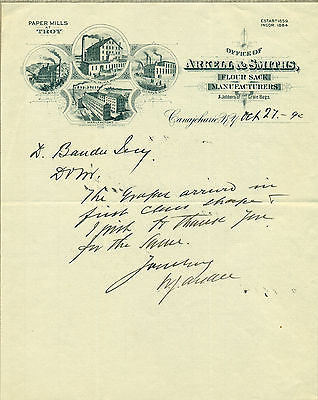 PAPER MILLS
AT
TROY
ESTABT 1859
INCOR. 1884
OFFICE OF
ARKELL & SMITHS,
FLOUR SACK
MANUFACTURERS
& Jobbers of Grain Bags.
Canajoharie, N.Y. Oct 27 - 90
D. Bandu Secy
D Sir.
The Grapes arrived in
first class shape &
I wish to thank you
for the same.
Yours truly